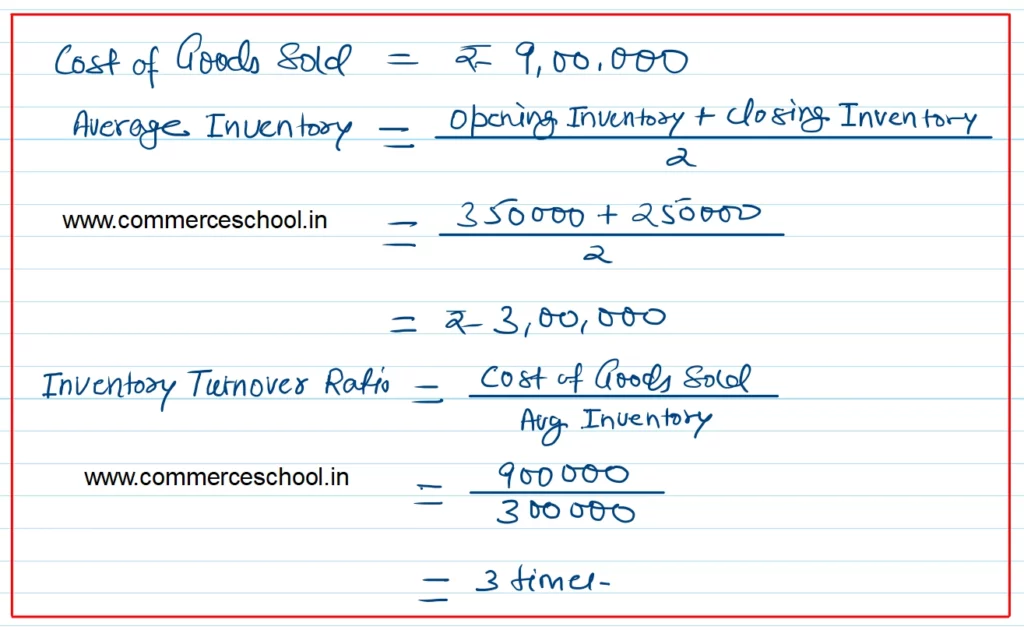 Cost of Goods Sold = ₹ 9,00,000
Average Inventory = Opening Inventory + Closing Inventory
2
www.commerceschool.in
= 350000 + 250000
2
= ₹ 3,00,000
Inventory Turnover Ratio = Cost of Goods Sold
Avg Inventory
www.commerceschool.in
= 900000
300000
= 3 times